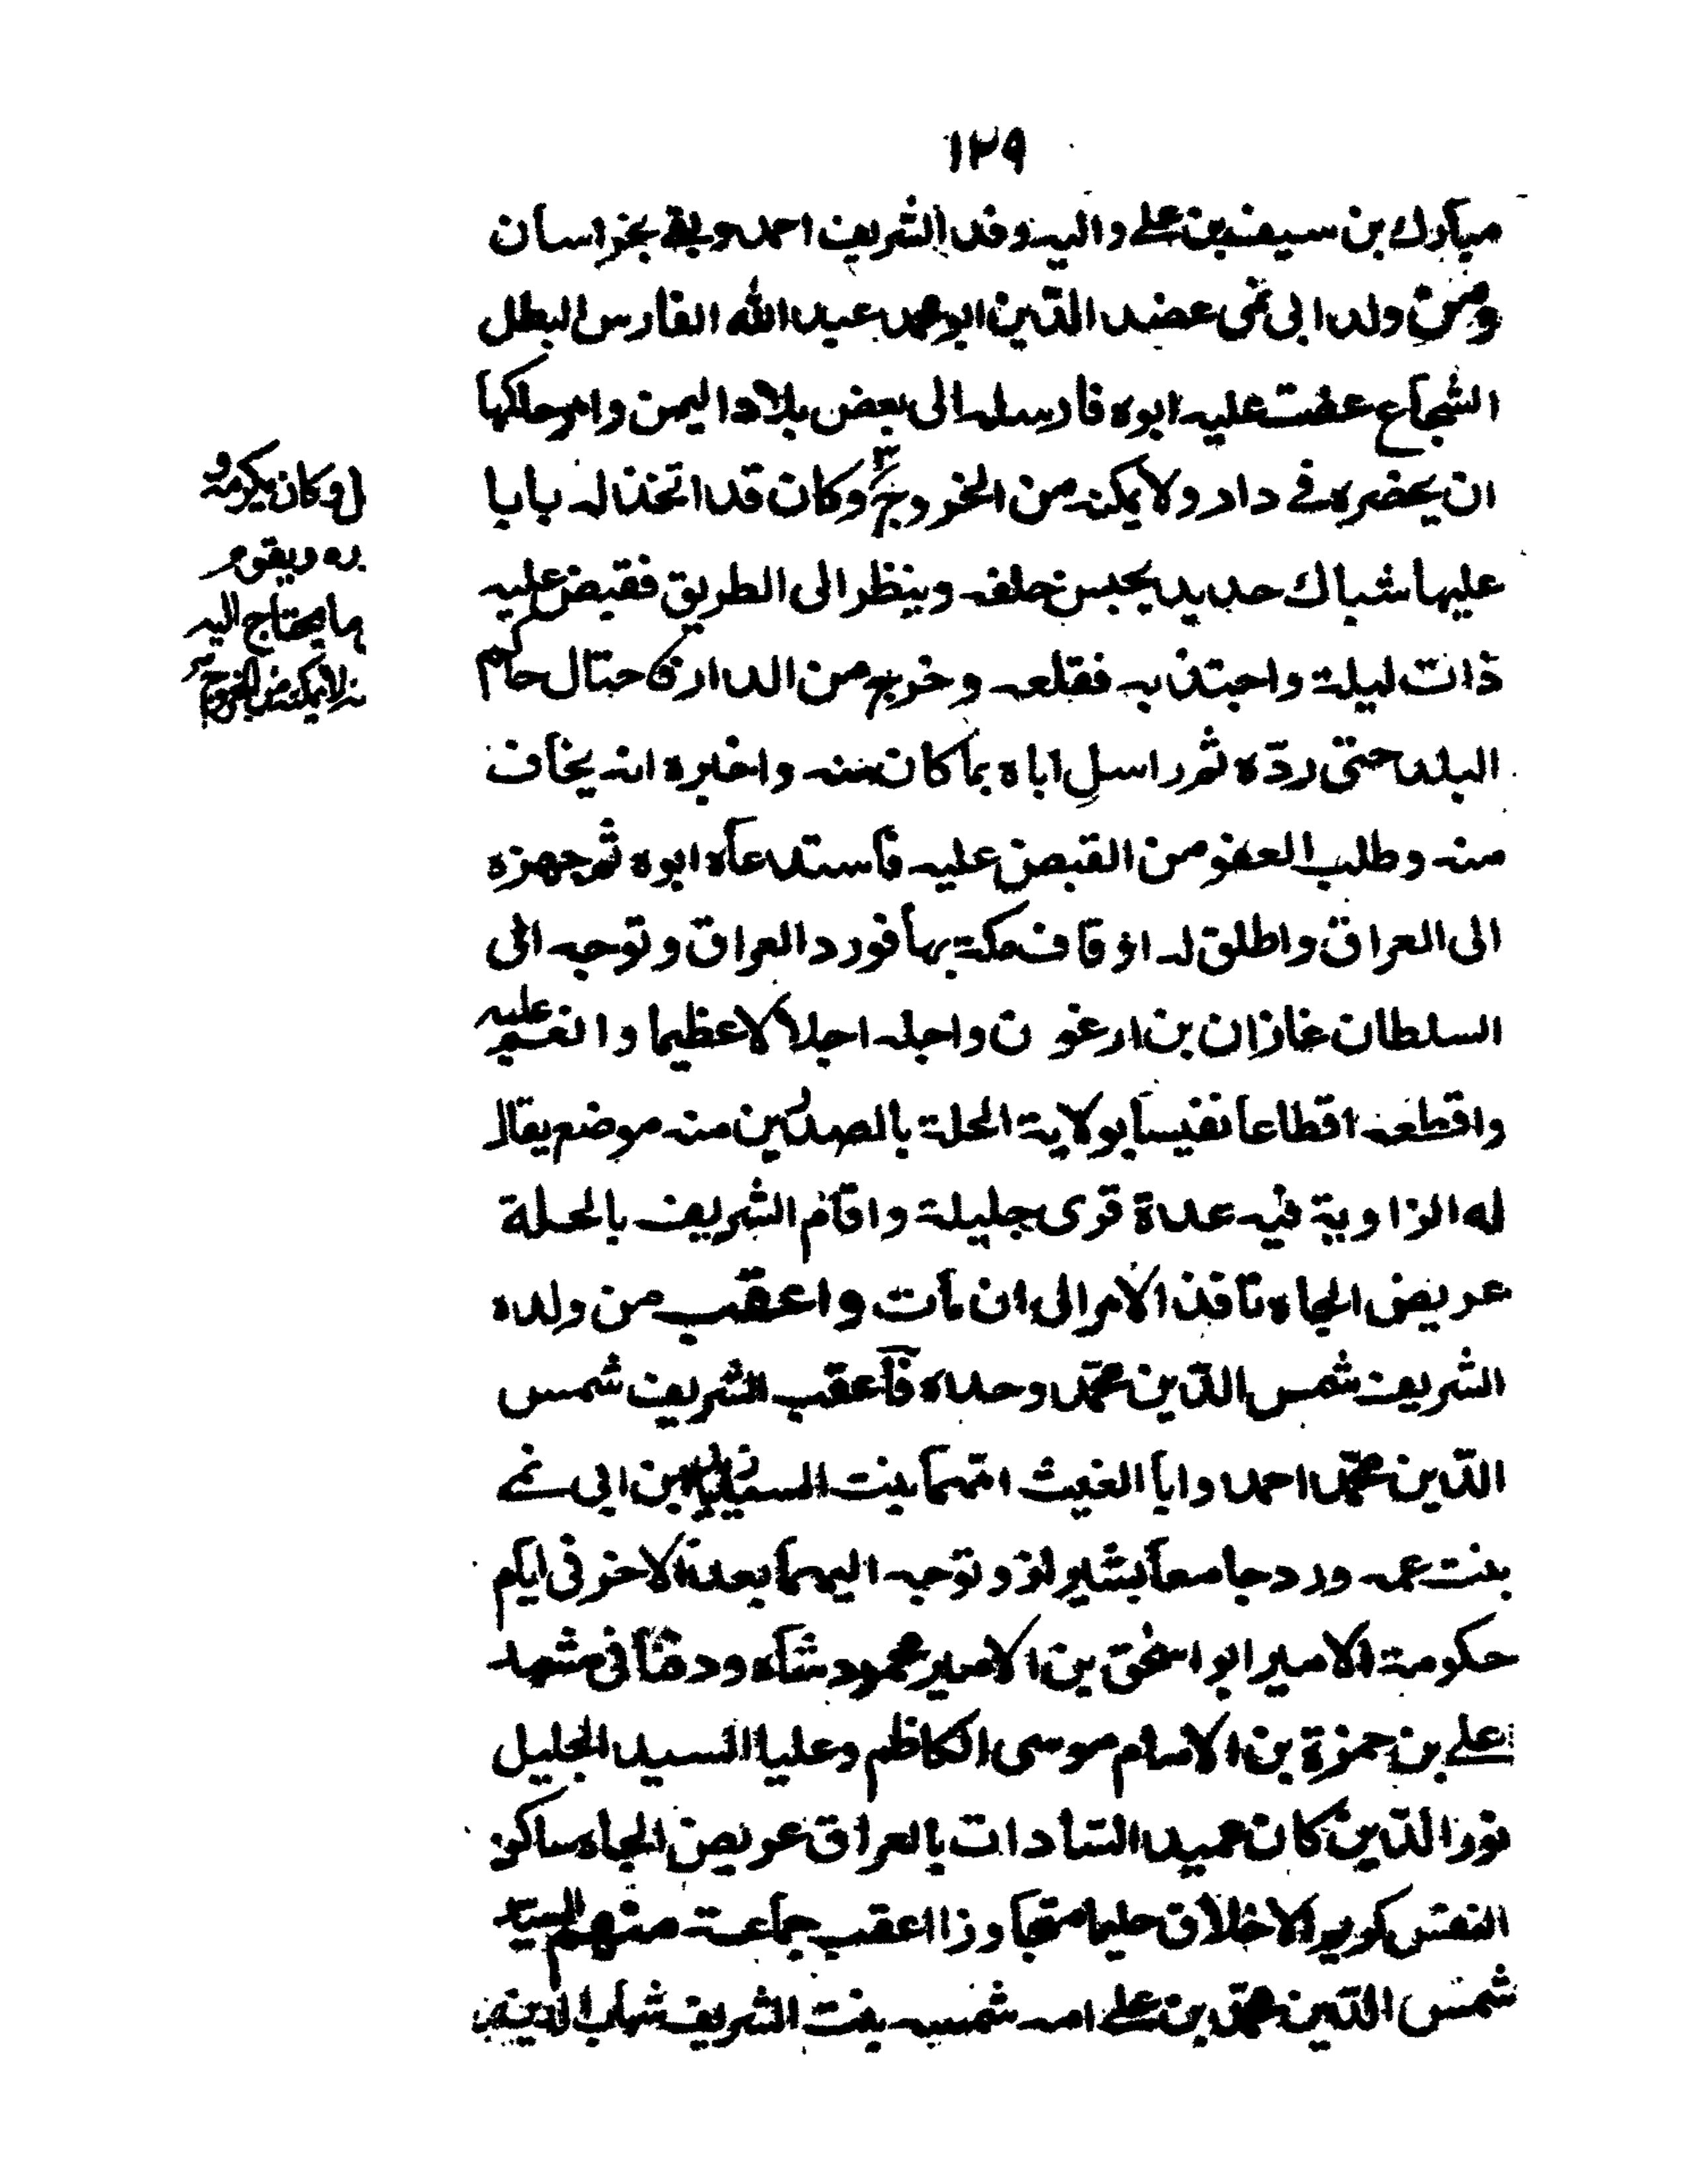 ١٢٩
مبارك بن سيف بن علي واليه وفد الشريف احمد وبقي بخراسان
ومن ولد ابي نمى عضد الدّين ابو محمد عبد الله الفارس البطل
الشجاع غضب عليه ابوه فارسله الى بعض بلاد اليمن وامر حاكمها
ان يحضره في دار ولا يمكنه من الخروج وكان قد اتخذ له بابا
عليها شباك حديد يجلس خلفه وينظر الى الطريق فقبض عليه
ذات ليلة واجتذبه فقلعه وخرج من الدار فاحتال حاكم
البلد حتى ردّه ثم راسل اباه بما كان منه واخبره انه يخاف
منه وطلب العفو من القبض عليه فاستدعاه ابوه ثم جهزه
الى العراق واطلق له اوقاف مكة بها فورد العراق وتوجه الى
السلطان غازان بن ارغون واجله اجلالا عظيما وانعم عليه
واقطعه اقطاعا نفيسا بولاية الحلة بالصدرين منه موضع يقال
له الزاوية فيه عدة قرى جليلة واقام الشريف بالحلة
عريض الجاه نافذ الامر الى ان مات واعقب من ولده
الشريف شمس الدّين محمّد وحده فاعقب الشريف شمس
الدّين محمّد احمد وابا الغيث امّهما بنت السيد بن ابي نمي
بنت عمه ورد جامعا بشيراز وتوجه اليهما بعد الاخر في ايام
حكومة الامير ابو اسحق بن الامير محمود شاه ودفنا في مشهد
علي بن حمزة بن الامام موسى الكاظم وعليا السيد الجليل
نور الدّين كان عميد السّادات بالعراق عريض الجاه ساكن
النفس كريم الاخلاق حليما متجاوزا اعقب جماعة منهم السيد
شمس الدّين محمّد بن علي امه شمسيه بنت الشريف شهاب الدين
وكان يكرمه و
ره ويقوم
ما يحتاج اليه
نه لا يمكنه من الخروج